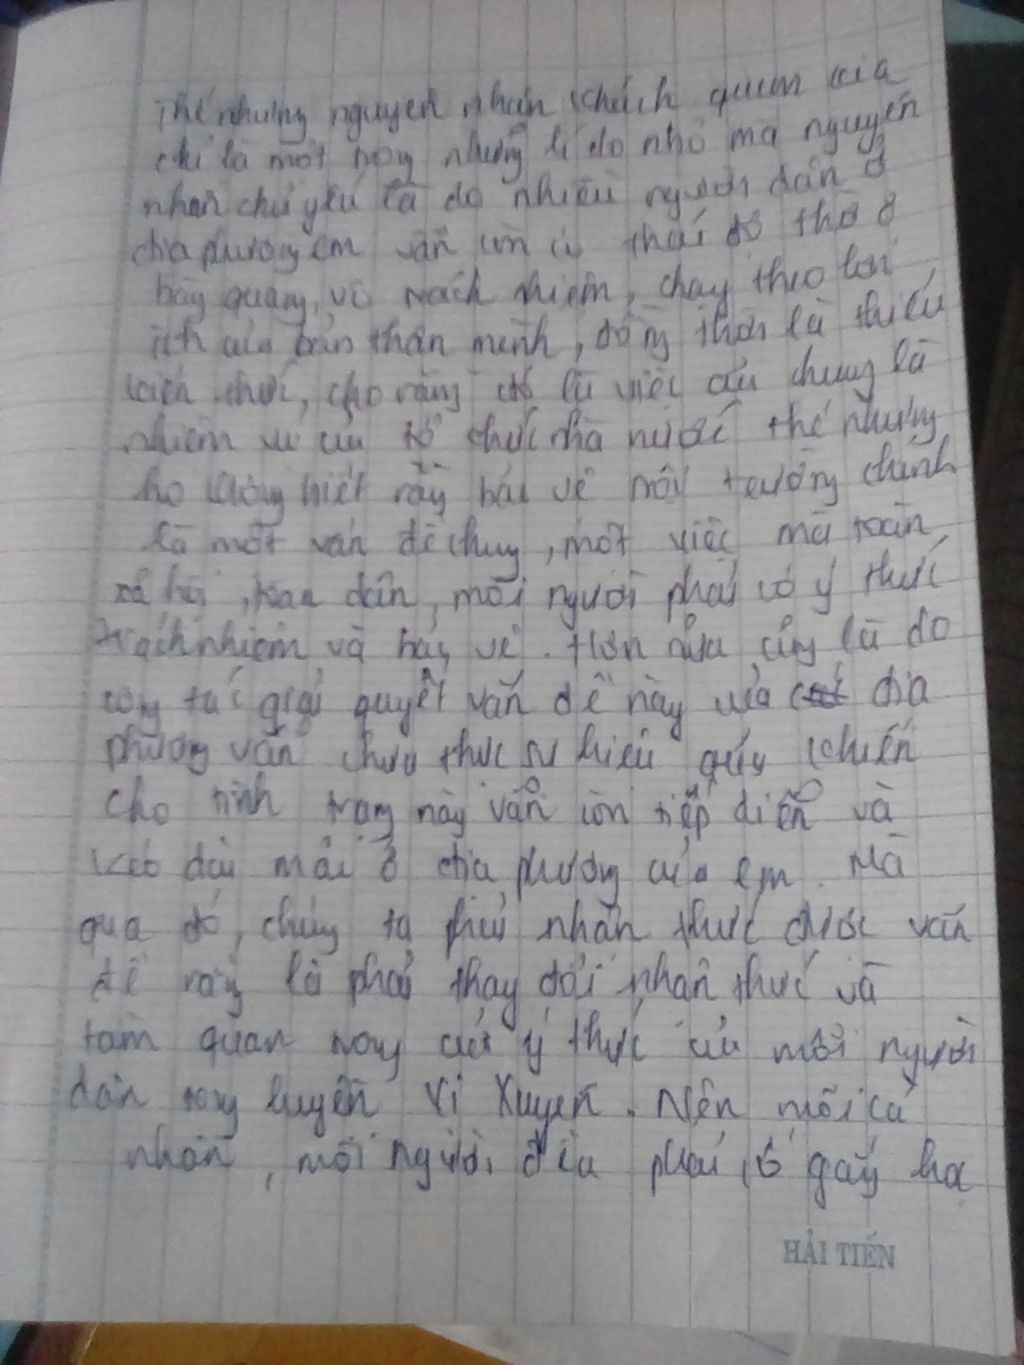 Thế nhưng nguyên nhân khách quan kia
chỉ là một trong những lí do nhỏ mà nguyên
nhân chủ yếu là do nhiều người dân ở
địa phương em vẫn còn có thái độ thờ ơ
bàng quang, vô trách nhiệm, chạy theo lợi
ích của bản thân mình, đồng thời là thiếu
kiến thức, cho rằng đó là việc của chung là
nhiệm vụ của tổ chức nhà nước thế nhưng
họ không biết rằng bảo vệ môi trường chính
là một vấn đề chung, một việc mà toàn
xã hội, toàn dân, mỗi người phải có ý thức
trách nhiệm và bảo vệ. Hơn nữa, cũng là do
công tác giải quyết vấn đề này của địa
phương vẫn chưa thực sự hiệu quả khiến
cho tình trạng này vẫn còn tiếp diễn và
kéo dài mãi ở địa phương của em. Mà
qua đó, chúng ta phải nhận thức được vấn
đề này là phải thay đổi nhận thức và
tầm quan trọng của ý thức của mỗi người
dân trong huyện Vị Xuyên. Nên mỗi cá
nhân, mỗi người đều phải cố gắng học
HẢI TIẾN